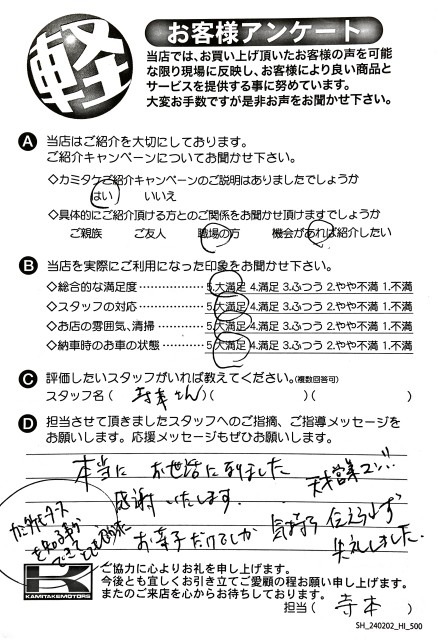 軽
お客様アンケート
当店では、お買い上げ頂いたお客様の声を可能
な限り現場に反映し、お客様により良い商品と
サービスを提供する事に努めています。
大変お手数ですが是非お声をお聞かせ下さい。
A 当店はご紹介を大切にしております。
ご紹介キャンペーンについてお聞かせ下さい。
◇カミタケご紹介キャンペーンのご説明はありましたでしょうか
はい いいえ
◇具体的にご紹介頂ける方とのご関係をお聞かせ頂けますでしょうか
ご親族 ご友人 職場の方 機会があれば紹介したい
B 当店を実際にご利用になった印象をお聞かせ下さい。
◇総合的な満足度・・・・・・・・・・・5.大満足 4.満足 3.ふつう 2.やや不満 1.不満
◇スタッフの対応・・・・・・・・・・・5.大満足 4.満足 3.ふつう 2.やや不満 1.不満
◇お店の雰囲気、清掃・・・・・・5.大満足 4.満足 3.ふつう 2.やや不満 1.不満
◇納車時のお車の状態・・・・・・5.大満足 4.満足 3.ふつう 2.やや不満 1.不満
C 評価したいスタッフがいれば教えてください。(複数回答可)
スタッフ名( 寺本さん )( )( )
D 担当させて頂きましたスタッフへのご指摘、ご指導メッセージを
お願いします。応援メッセージもぜひお願いします。
本当に お世話になりました
感謝いたします。
お菓子だけでしか 気持ち 伝えられず
失礼しました。
K
KAMITAKEMOTORS
ご協力に心よりお礼を申し上げます。
今後とも宜しくお引き立てご愛顧の程お願い申し上げます。
またのご来店を心からお待ちしております。
担当( 寺本 )
SH_240202_HI_500